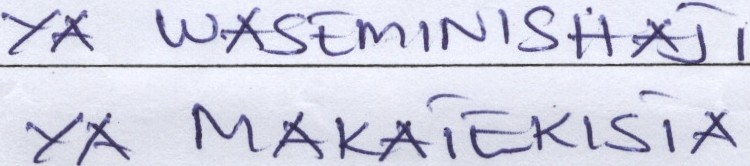 YA WASEMINISHAJI
YA MAKATEKISTA